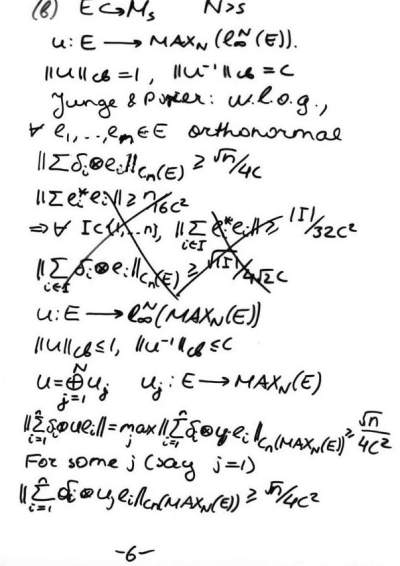 (b) E↪M_s N>s
u: E ⟶ MAX_N(ℓ_∞^N(E)).
‖u‖_cb = 1, ‖u⁻¹‖_cb = C
Junge & Pisier: w.l.o.g.,
∀ e_1,…,e_n ∈ E orthonormal
‖Σ δ_i⊗e_i‖_{C_n(E)} ≥ √n/4C
‖Σ e_i^* e_i‖ ≥ n/16C²
⇒ ∀ I⊂{1,…n}, ‖Σ_{i∈I} e_i^* e_i‖ ≥ |I|/32C²
‖Σ_{i∈I} δ_i⊗e_i‖_{C_n(E)} ≥ √|I|/4√2C
u: E ⟶ ℓ_∞^N(MAX_N(E))
‖u‖_cb ≤ 1, ‖u⁻¹‖_cb ≤ C
u = ⊕_{j=1}^N u_j u_j : E ⟶ MAX_N(E)
‖Σ_{i=1}^n δ_i⊗ue_i‖ = max_j ‖Σ_{i=1}^n δ_i⊗u_j e_i‖_{C_n(MAX_N(E))} ≥ √n/4C²
For some j (say j=1)
‖Σ_{i=1}^n δ_i⊗u_j e_i‖_{C_n(MAX_N(E))} ≥ √n/4C²
-6-